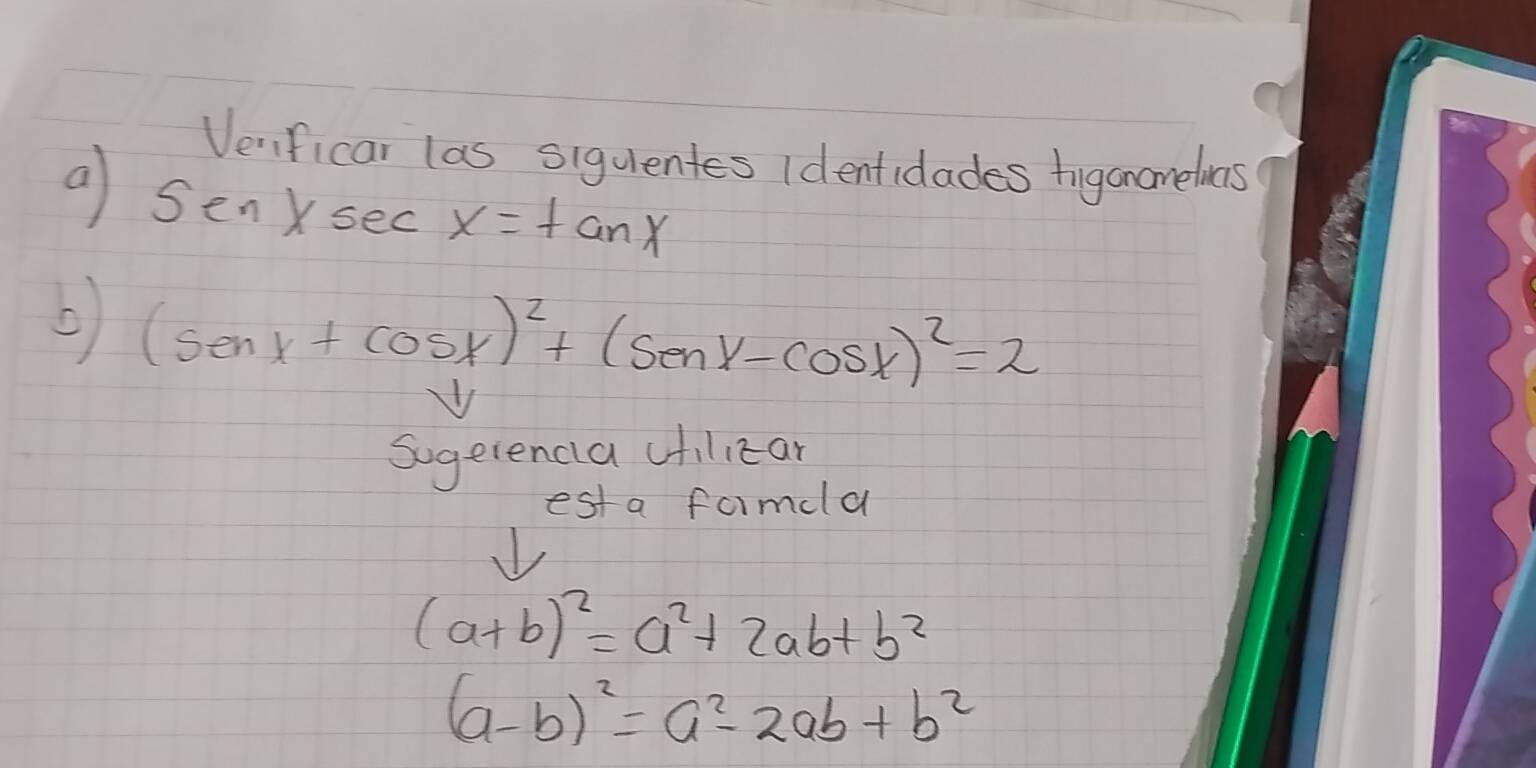 Verificar las siguientes identidades trigonometricas
a) Sen x sec x = tan x
b) (sen x + cosx)² + (Sen x - cosx)² = 2
↓
Sugerencia utilizar
esta formula
↓
(a+b)² = a² + 2ab + b²
(a-b)² = a² - 2ab + b²